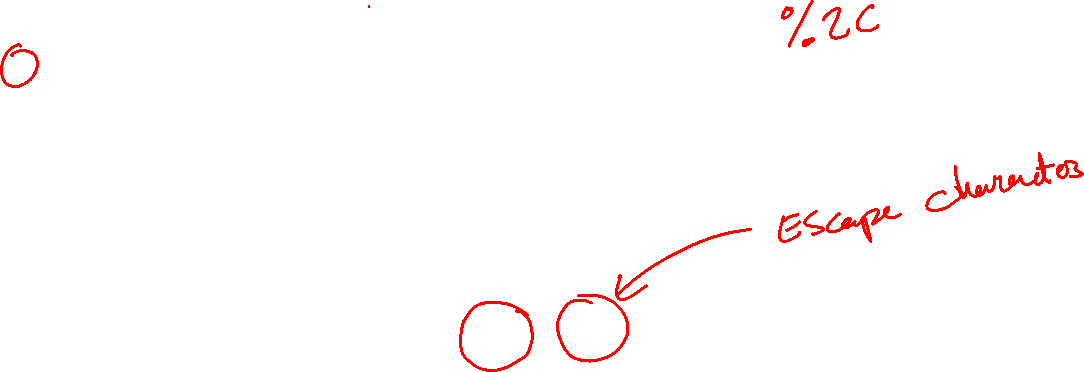 %2C
Escape characters